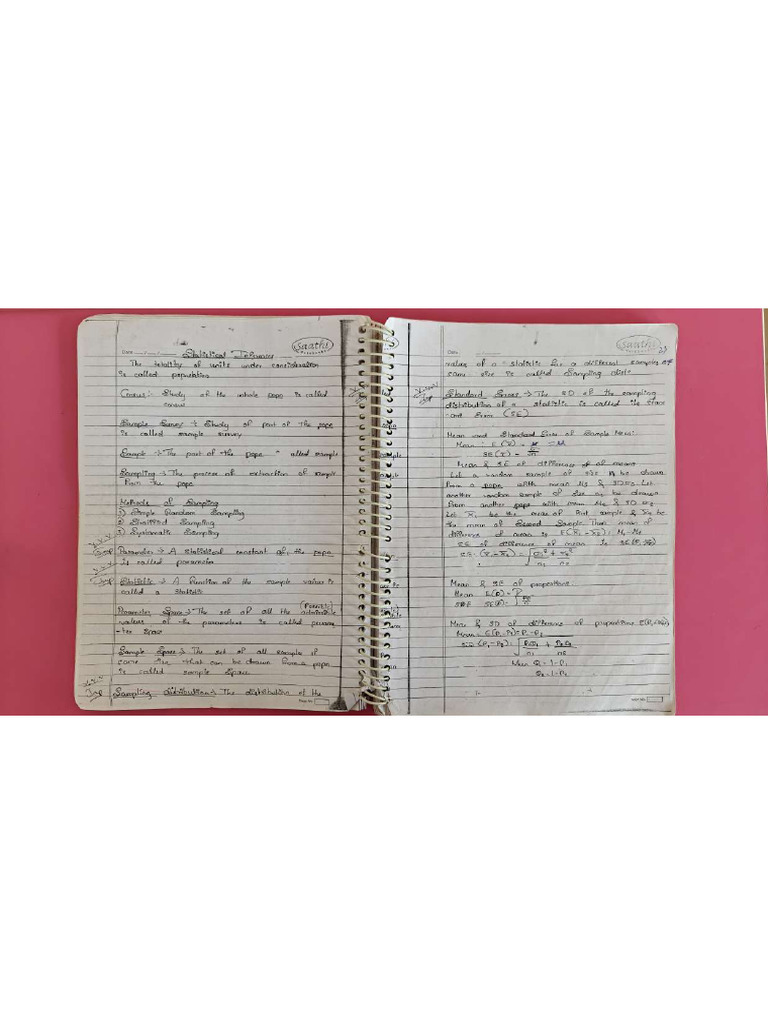 Saathi
Date
Statistical Inference
The totality of units under consideration
is called population
Census: Study of the whole popn is called
census
Sample Survey → Study of part of the popn
is called sample survey
Sample → The part of the popn " called sample
Sampling → The process of extraction of sample
from the popn
Methods of Sampling
1) Simple Random Sampling
2) Stratified Sampling
3) Systematic Sampling
Imp
Parameter → A statistical constant of the popn
is called parameter
Imp
Statistic → A function of the sample values is
called a statistic
(Possible)
Parameter Space → The set of all the admissible
values of the parameters is called parame
-ter space
Sample Space → The set of all samples of
same size that can be drawn from a popn
is called sample space
Imp
Sampling distribution → The distribution of the
Page No.
Saathi
Date
value of a statistic for a different samples of
same size is called Sampling dist
Imp
Standard Error → The SD of the sampling
distribution of a statistic is called its stan
-ard Error (SE)
Mean and Standard Error of Sample Mean:
Mean : E(x̄) = = M
SE(x̄) = σ/√n
Mean & SE of difference of means
Let a random sample of size n be drawn
from a popn with mean M1 & SD σ1. Let
another random sample of size n2 be drawn
from another popn with mean M2 & SD σ2
Let x̄1 be the mean of first sample & x̄2 be
the mean of Second Sample. Then mean of
difference of mean is E(x̄1 - x̄2) = M1 - M2
SE of difference of mean is
SE (x̄1 - x̄2) = √σ1²/n1 + σ2²/n2
Mean & SE of proportions:
Mean E(p) = P
SE(p) = √PQ/n
Mean & SD of difference of proportions
Mean = E(P1-P2) = P1-P2
SD (P1-P2) = √P1Q1/n1 + P2Q2/n2
Q1 = 1-P1
Q2 = 1-P2
Page No.